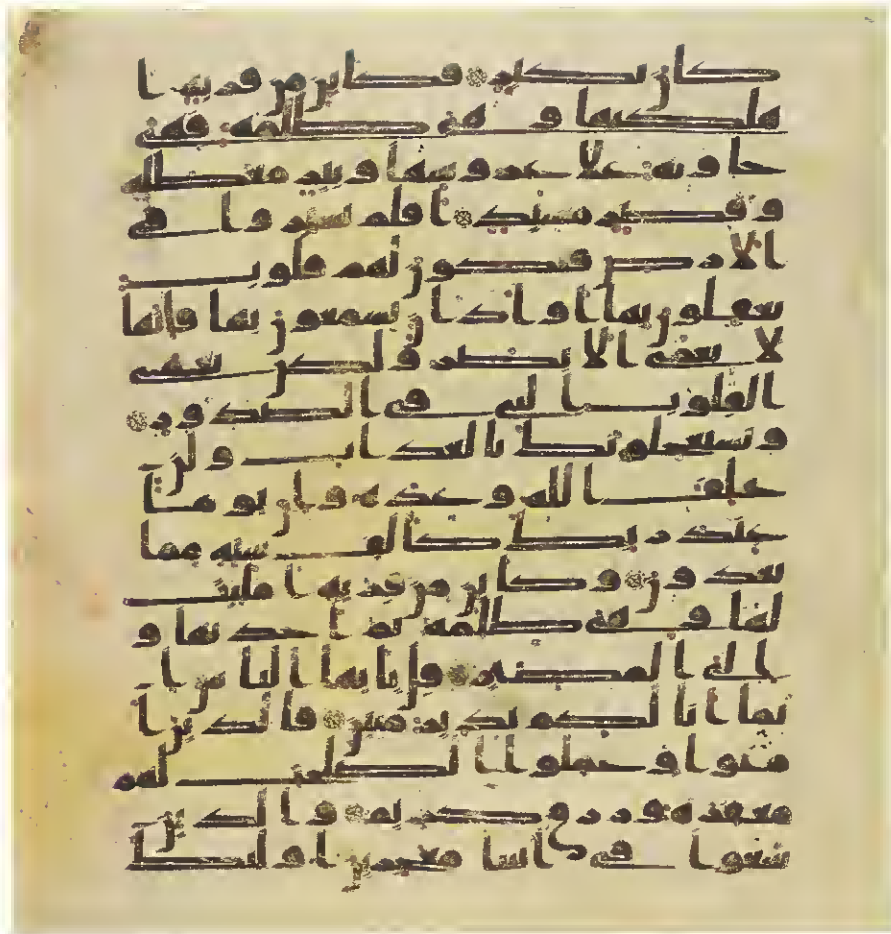 كان نكير فكاين من قرية ا
هلكنها وهي ظالمة فهي
خاوية على عروشها وبير معطلة
وقصر مشيد افلم يسيروا في
الارض فتكون لهم قلوب
يعقلون بها او اذان يسمعون بها فانها
لا تعمى الابصر ولكن تعمى
القلوب التي في الصدور
ويستعجلونك بالعذاب ولن
يخلف الله وعده وان يوما
عند ربك كالف سنة مما
تعدون وكاين من قرية امليت
لها وهي ظالمة ثم اخذتها و
الي المصير قل يايها الناس ا
نما انا لكم نذير مبين فالذين ا
منوا وعملوا الصلحت لهم
مغفرة ورزق كريم والذين
سعوا في ايتنا معجزين اوليك